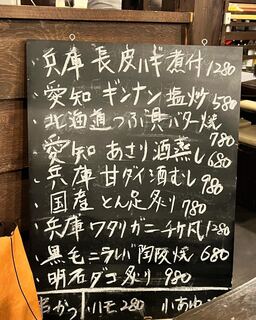 ・兵庫 長皮ハギ煮付 1280
・愛知 ギンナン 塩炒 580
・北海道つぶ貝バター焼 780
・愛知 あさり酒蒸し 680
・兵庫 甘ダイ酒むし 980
・国産 とん足炙り 780
・兵庫 ワタリガニチゲ風 1280
・黒毛ニラレバ陶板焼 680
・明石ダコ炙り 980
串かつ ハモ 280 小あゆ